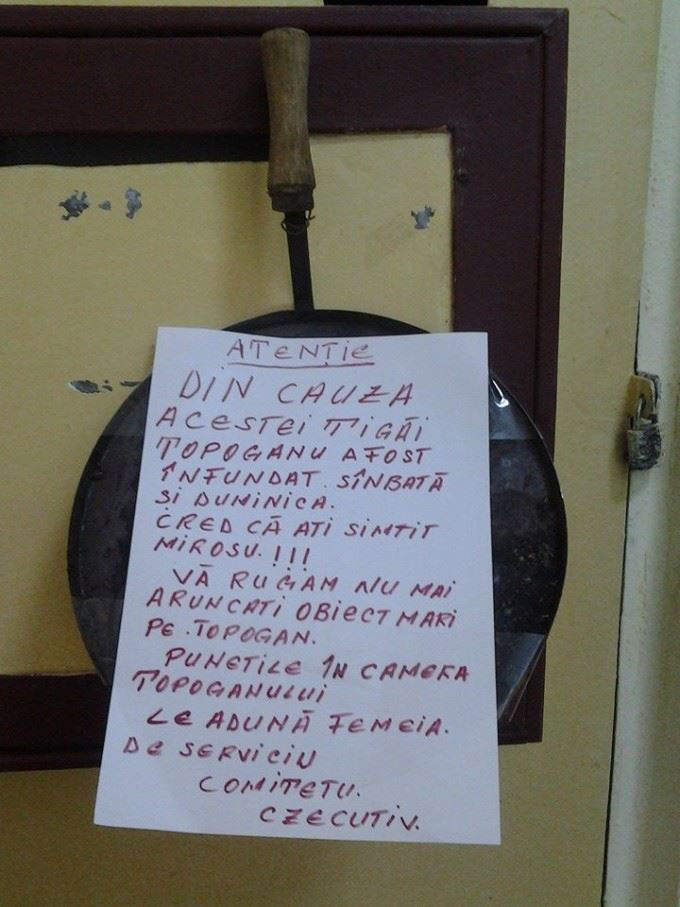 ATENȚIE
DIN CAUZA
ACESTEI TIGĂI
TOPOGANU AFOST
ÎNFUNDAT. SÎNBATĂ
ȘI DUMINICA.
CRED CĂ ATI SIMTIT
MIROSU.!!!
VĂ RUGAM NU MAI
ARUNCATI OBIECT MARI
PE.TOPOGAN.
PUNETILE ÎN CAMERA
TOPOGANULUI
LE ADUNĂ FEMEIA.
DE SERVICIU
COMITETU.
CZECUTIV.